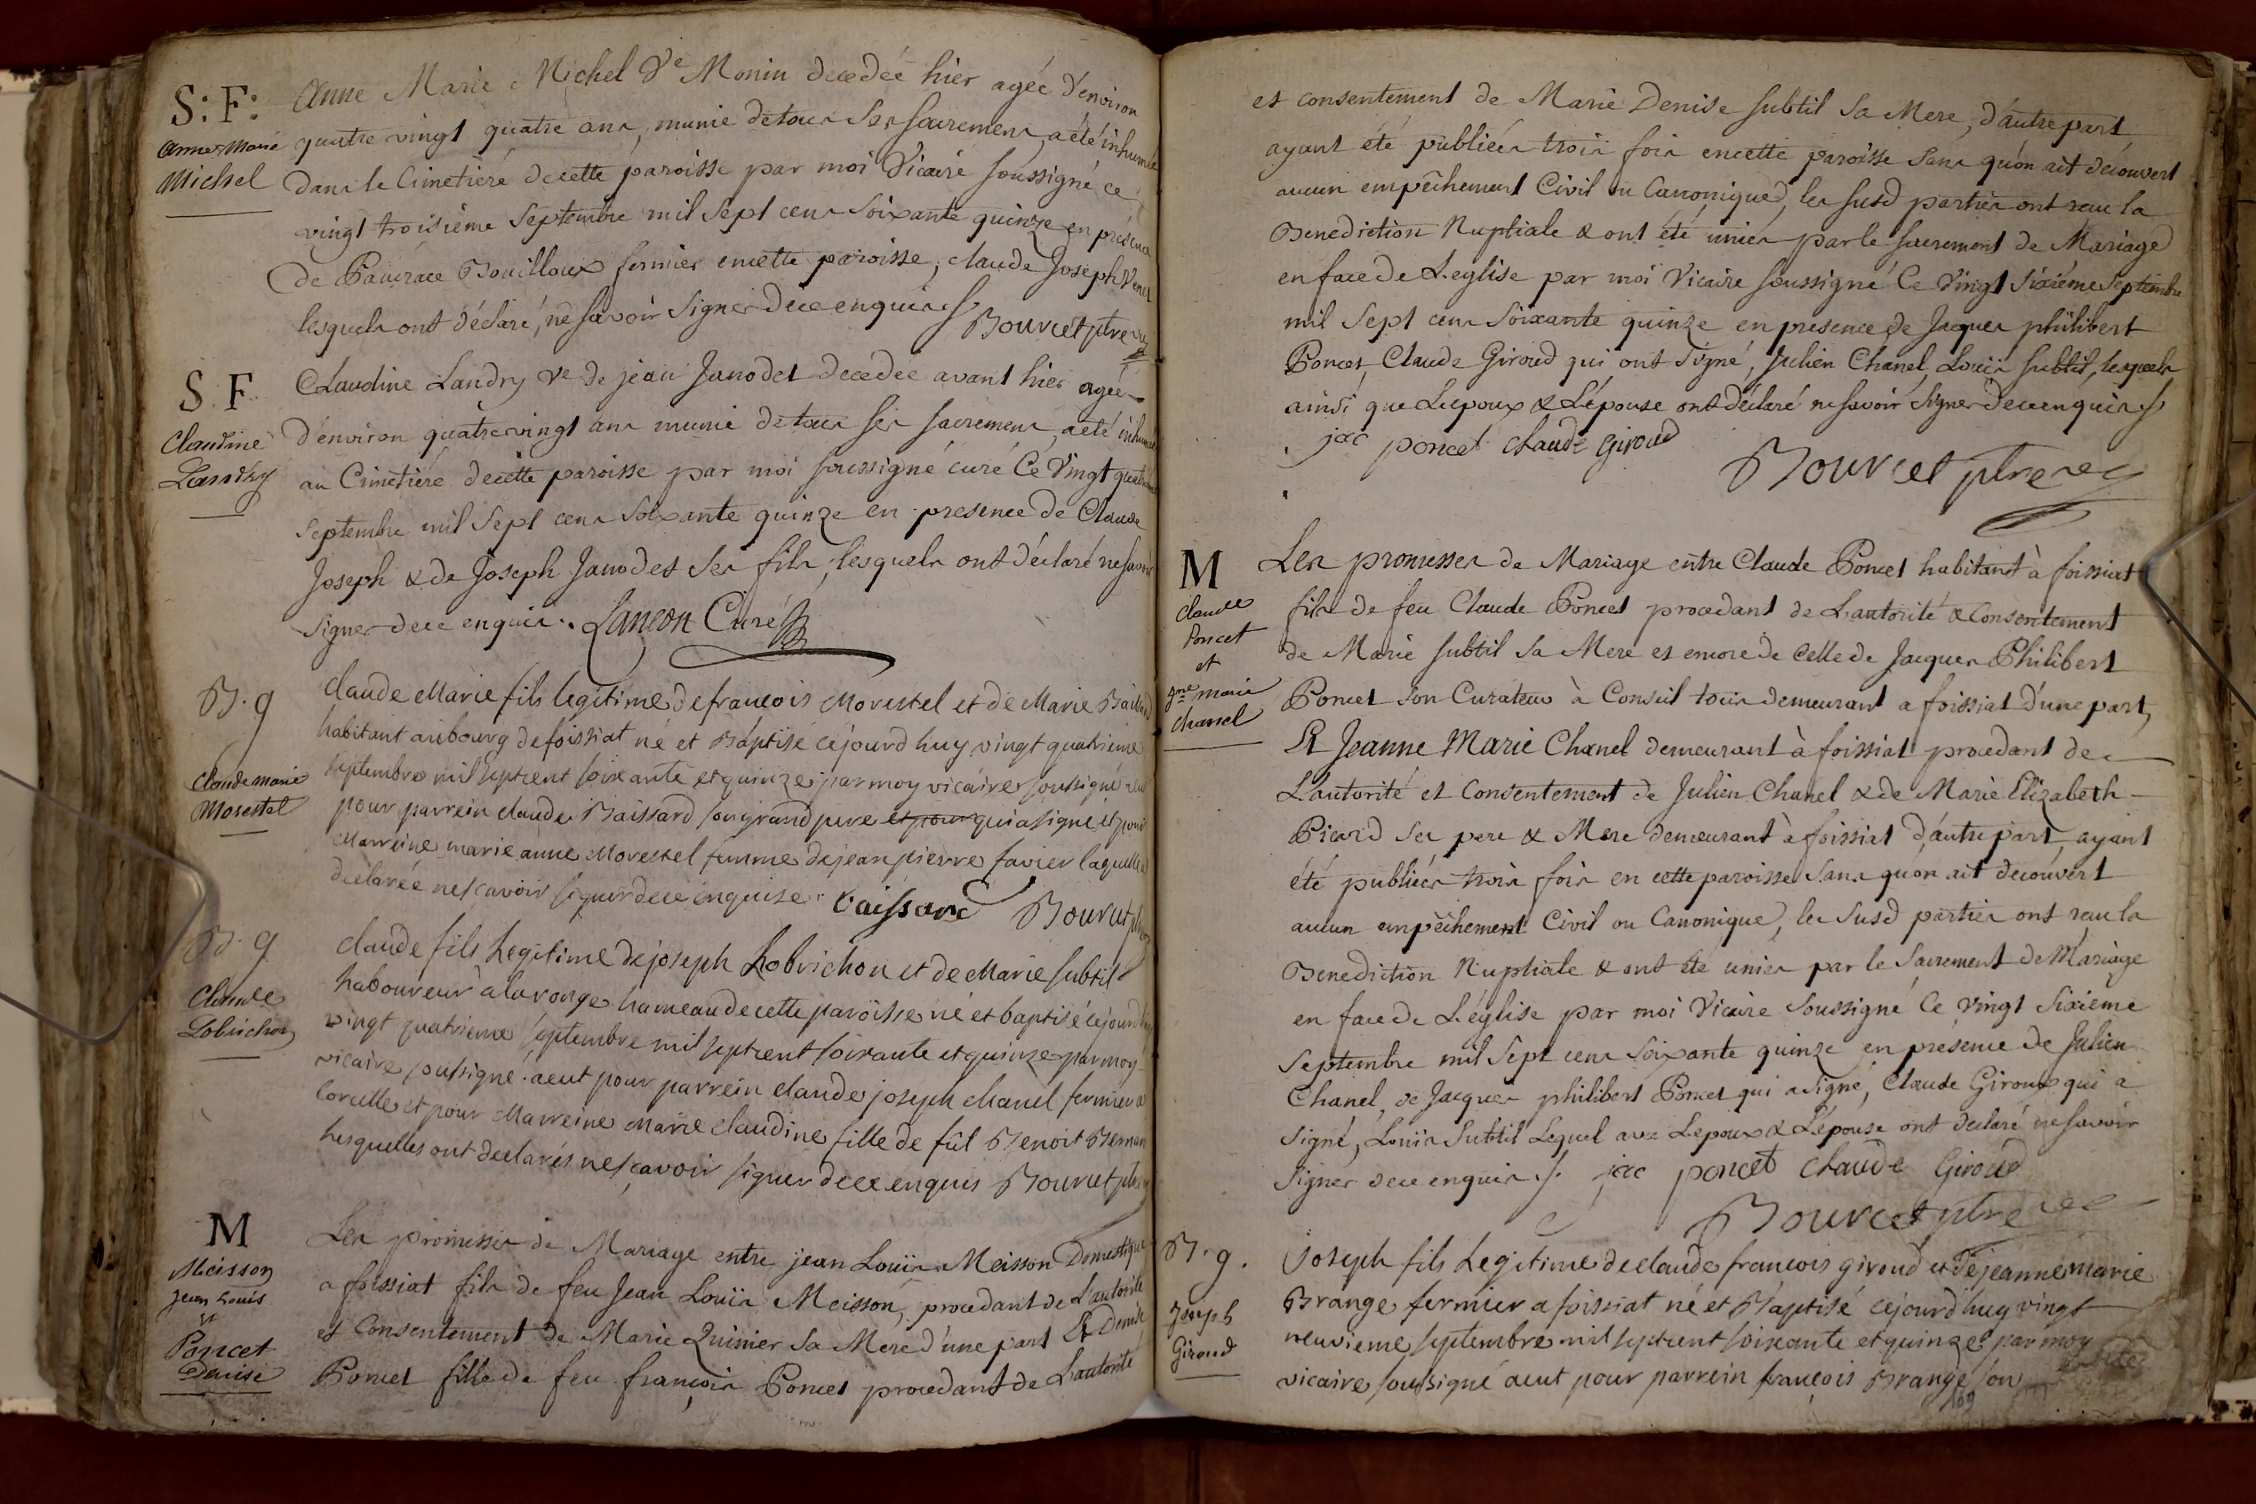 S: F:
Anne Marie
Michel
Anne Marie Michel Ve Monin decedeé hier agée d'environ
quatre vingt quatre ans, munie de tous ses sacremens a été inhumée
dans le Cimetiére de cette paroisse par moi Vicaire soussigné ce
vingt troisiéme Septembre mil Sept cens soixante quinze en présence
de Pancrace Bouilloux fermier en cette paroisse, claude Joseph
lesquels ont déclaré, ne savoir signer de ce enquis
Bourcet ptre vic
S F
Claudine
Landry
Claudine Landry ve de jean Janodet decedée avant hier agée
d'environ quatrevingt ans munie de tous ses sacremens, a été inhumée
au Cimetiére de cette paroisse par moi soussigné curé Ce Vingt quatrieme
Septembre mil Sept cens soixante quinze en presence de Claude
Joseph & de Joseph Janodet Ses fils, lesquels ont déclaré ne savoir
signer de ce enquis. Lançon Curé
B. g
Claude marie
Morestel
Claude Marie fils legitime de françois Morestel et de Marie Baissard
habitant au bourg de foissiat né et Baptisé cejourd'huy vingt quatrieme
septembre mil sept cent soixante et quinze par moy vicaire soussigné
pour parrein claude Baissard son grand pere et pour qui a signé, et pour
Marreine marie anne Morestel femme de jean pierre favier laquelle a
declarée ne sçavoir signer de ce enquise. baissard Bourcet ptre
B. g
Claude
Lobrichon
claude fils Legitime de joseph Lobrichon et de Marie subtil
Laboureur à la ronge hameau de cette paroisse né et baptisé cejourd'huy
vingt quatrieme septembre mil sept cent soixante et quinze par moy
vicaire soussigné. a eut pour parrein claude joseph chanel fermier a
Corcelle et pour Marreine Marie claudine fille de fût Benoit
Lesquelles ont declarés ne sçavoir signer de ce enquis Bourcet ptre
M
Meisson
Jean Louis
et
Poncet
Denise
Les promesses de Mariage entre jean Louis Meisson Domestique
a foissiat fils de feu Jean Louis Meisson, procedant de L'autorité
et consentement de Marie Quinier sa Mere d'une part Et Denise
Poncet fille de feu françois Poncet procedant de L'autorité
et consentement de Marie Denise subtil sa Mere, d'autre part
ayant été publiées trois fois en cette paroisse sans qu'on ait découvert
aucun empêchement Civil ou Canonique, les susd parties ont reçu la
Benediction Nuptiale & ont été unies par le sacrement de Mariage
en face de L'eglise par moi Vicaire soussigné Ce Vingt Sixiéme Septembre
mil Sept cens soixante quinze en presence de Jaques philibert
Poncet, Claude Giroud qui ont signé, Julien Chanel, Louis subtil, lesquels
ainsi que L'epoux & L'épouse ont déclaré ne savoir signer de ce enquis
jac poncet claude giroud
Bourcet ptre vic
M
Claude
Poncet
et
Jne marie
chanel
Les promesses de Mariage entre Claude Poncet habitant à foissiat
fils de feu Claude Poncet procedant de L'autorité & Consentement
de Marie subtil sa Mere et encore de Celle de Jacques Philibert
Poncet son Curateur à Conseil tous demeurant a foissiat d'une part,
Et Jeanne Marie Chanel demeurant à foissiat procedant de
L'autorité et Consentement de Julien Chanel & de Marie Elizabeth
Picard Ses pere & Mere demeurant à foissiat d'autre part, ayant
été publiées trois fois en cette paroisse sans qu'on ait découvert
aucun empêchement Civil ou Canonique, les susd parties ont reçu la
Benediction Nuptiale & ont été unies par le Sacrement de Mariage
en face de L'église par moi Vicaire Soussigné Ce vingt Sixieme
Septembre mil Sept cens soixante quinze en présence de Julien
Chanel, de Jacques philibert Poncet qui a signé, Claude Giroud qui a
signé, Louis Subtil Lequel avec L'epoux & L'épouse ont declaré ne savoir
signer de ce enquis. jac poncet claude Giroud
Bourcet ptre vic
B. g.
Joseph
Giroud
Joseph fils Legitime de claude francois giroud et de jeanne marie
Brange fermier a foissiat né et Baptisé cejourd'huy vingt
neuvieme septembre mil sept cent soixante et quinze par moy
vicaire soussigné a eut pour parrein françois Brange son
109